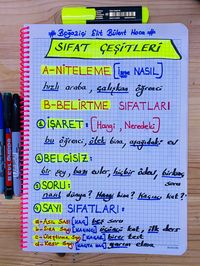 # Boğaziçi Elit Bülent Hoca #
SIFAT ÇEŞİTLERİ
A-NİTELEME [İsme NASIL
hızlı araba, çalışkan öğrenci
B-BELİRTME SIFATLARI
① İŞARET: [Hangi, Neredeki]
bu öğrenci, öteki bina, aşağıdaki ev
② BELGİSİZ:
bir şey, bazı evler, hiçbir ödev, birkaç soru
③ SORU:
nasıl dünya? Hangi bina? Kaçıncı kat?
④ SAYI SIFATLARI:
a- Asıl Sayı [KAÇ] beş soru
b- Sıra Sayı [KAÇINCI] üçüncü kat, ilk ders
c- Üleştirme Sayı [KAÇAR] birer test
d- Kesir Sayı [KAÇTA KAÇ] yarım elma